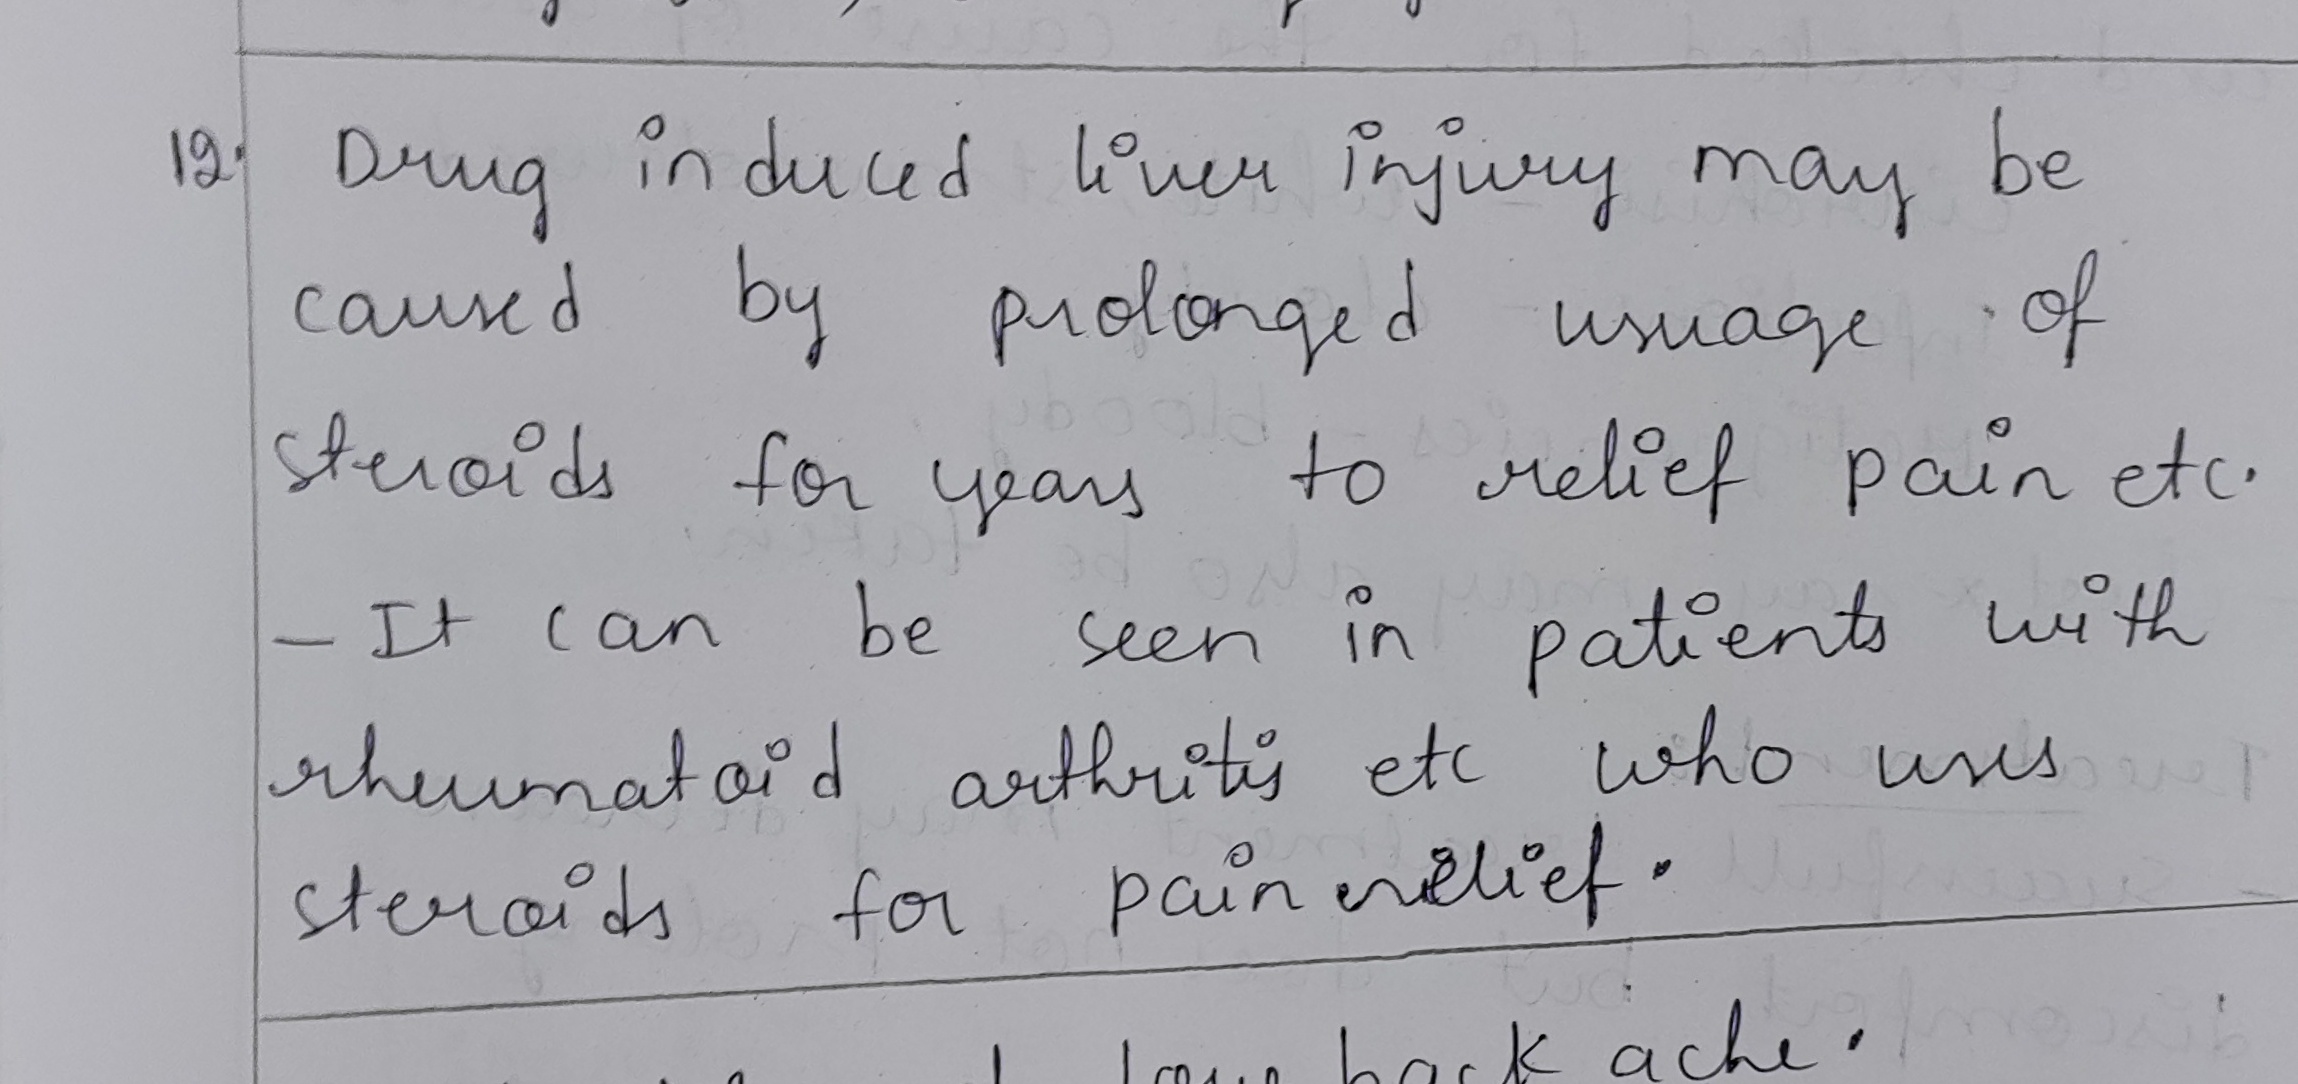 12. Drug induced liver injury may be
caused by prolonged usuage of
steroids for years to relief pain etc.
- It can be seen in patients with
rheumatoid arthritis etc who uses
steroids for pain relief.
back ache.